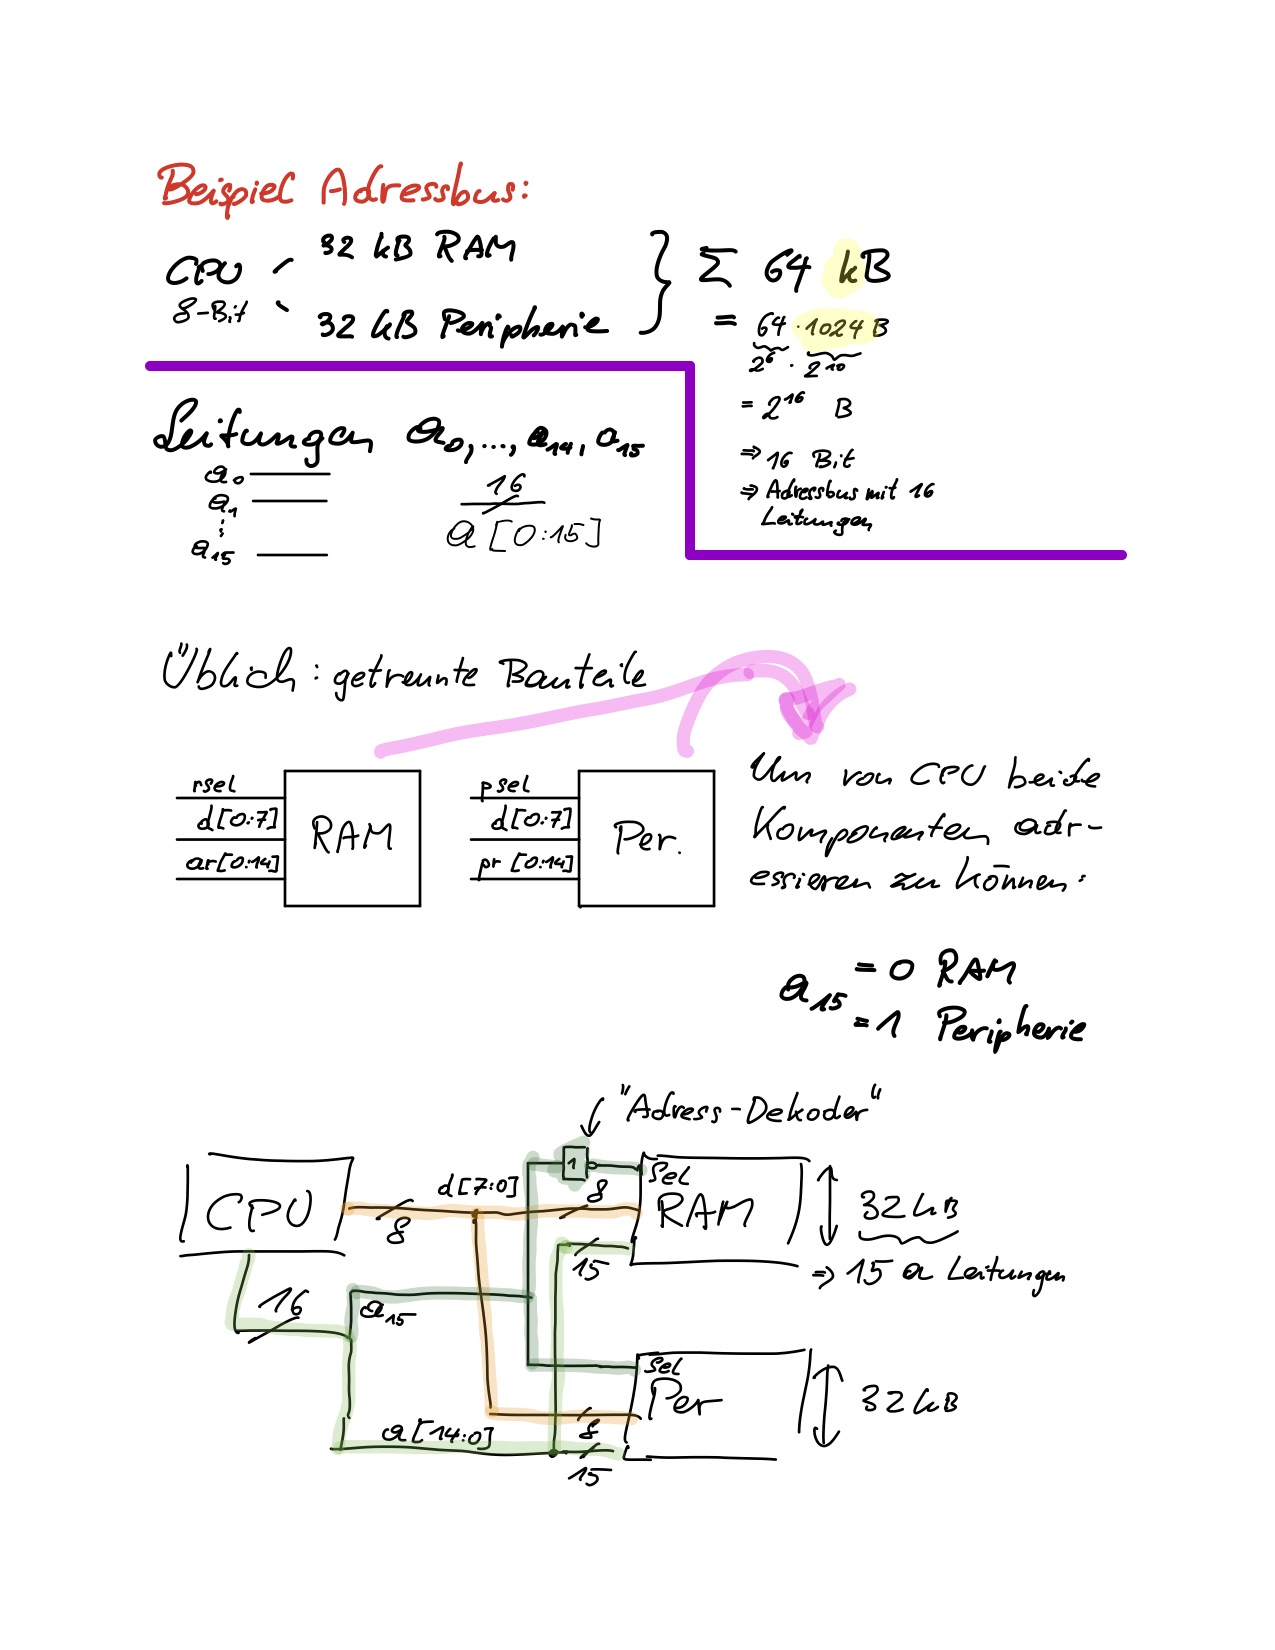 Beispiel Adressbus:
CPU
8-Bit
32 kB RAM
32 kB Peripherie
Σ 64 kB
= 64 · 1024 B
2^6 · 2^10
= 2^16 B
⇒ 16 Bit
⇒ Adressbus mit 16
Leitungen
Leitungen a0, ..., a14, a15
a0
a1
⋮
a15
16
a [0:15]
Üblich: getrennte Bauteile
rsel
d[0:7]
ar[0:14]
RAM
psel
d[0:7]
pr [0:14]
Per.
Um von CPU beide
Komponenten adr-
essieren zu können:
a15 = 0 RAM
= 1 Peripherie
"Adress-Dekoder"
CPU
d[7:0]
8
1
8
Sel
RAM
15
32 kB
⇒ 15 a Leitungen
16
a15
a[14:0]
Sel
Per
8
15
32 kB